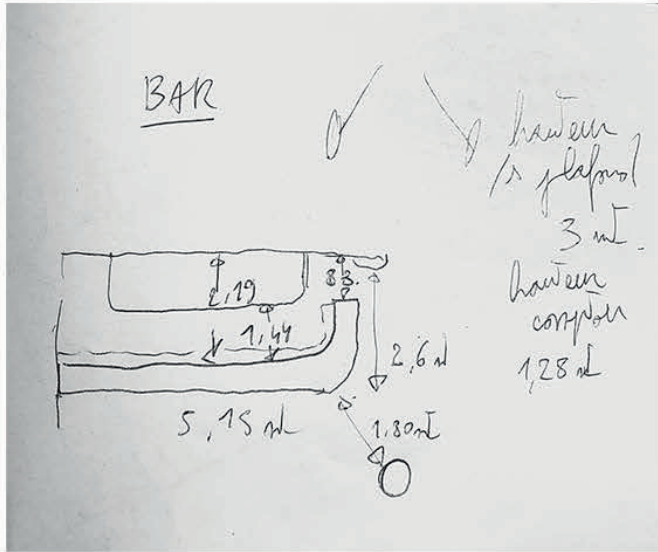 BAR
hauteur
/s plafond
3 mt.
hauteur
comptoir
1,28 mt
2,19
83.
1,44
2,6 mt
5,15 mt
1,80 mt